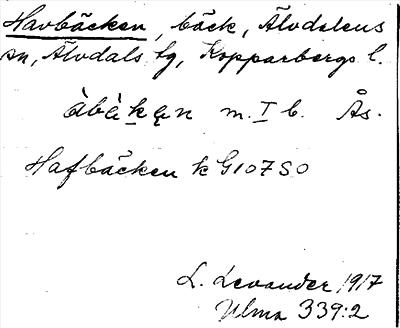 Havbäcken, bäck, Älvdalens
sn, Älvdals tg, Kopparbergs l.
àbà̤kạn m. I b. Ås.
Hafbäcken k G107SO
L. Levander 1917
Ulma 339:2